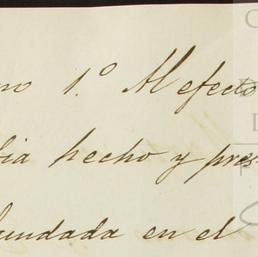 no 1.º Al efecto
bia hecho y pres
fundada en el